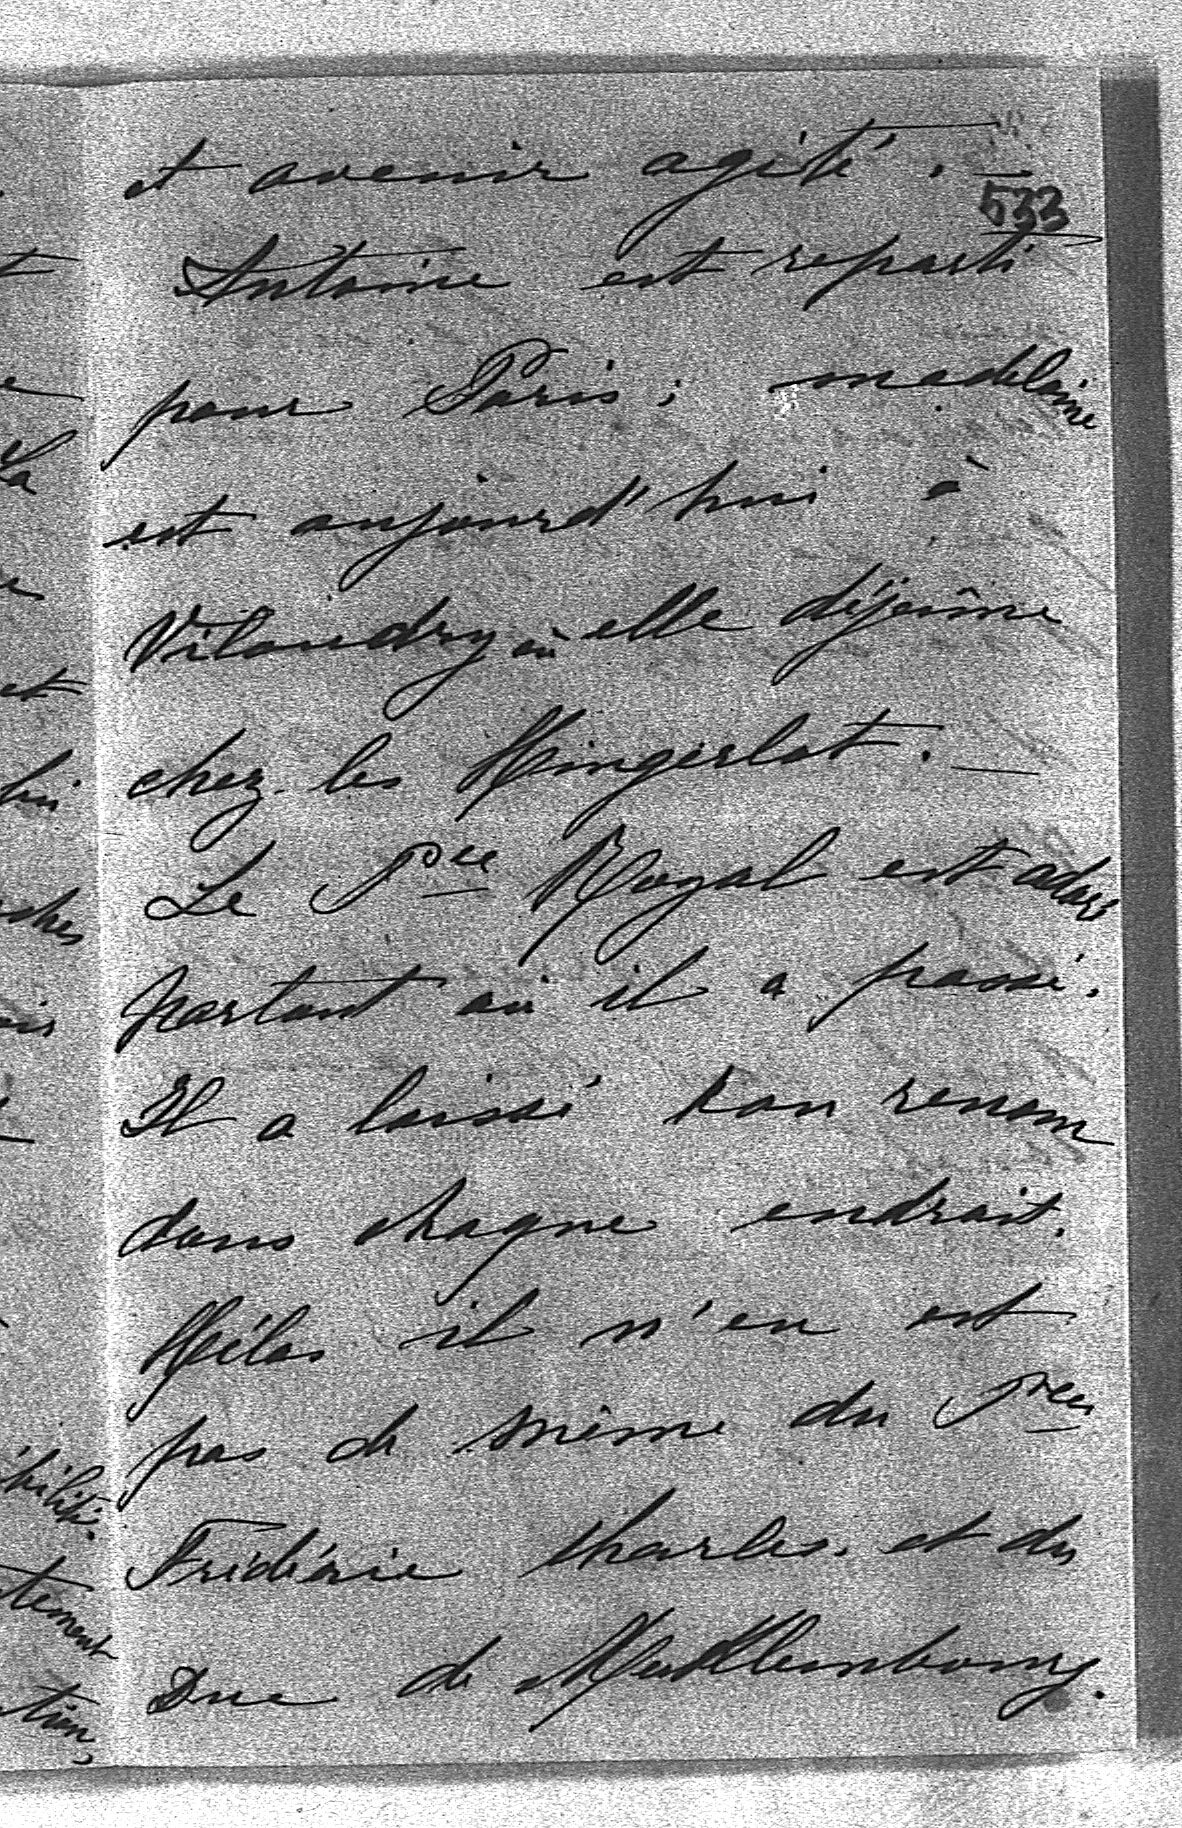 et avenir agité. —
533
Antoine est reparti
pour Paris ; madelaine
est aujourd'hui à
Vilandry où elle déjeûne
chez les Hingerlot. —
Le Pce Royal est adoré
partout où il a passé.
Il a laissé bon renom
dans chaque endroit.
Hélas il n'en est
pas de même du Pce
Frédéric Charles et du
Duc de Mecklembourg.